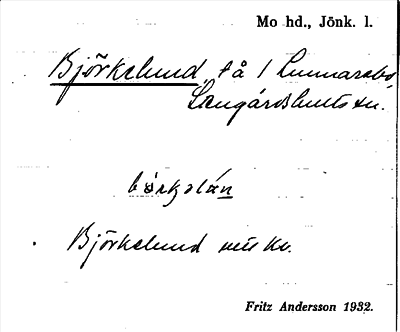 Mo hd., Jönk. l.
Björkelund, tå / Lunnarabo,
Langårdshults sn.
bö̀rkəlán
Björkelund
Fritz Andersson 1932.